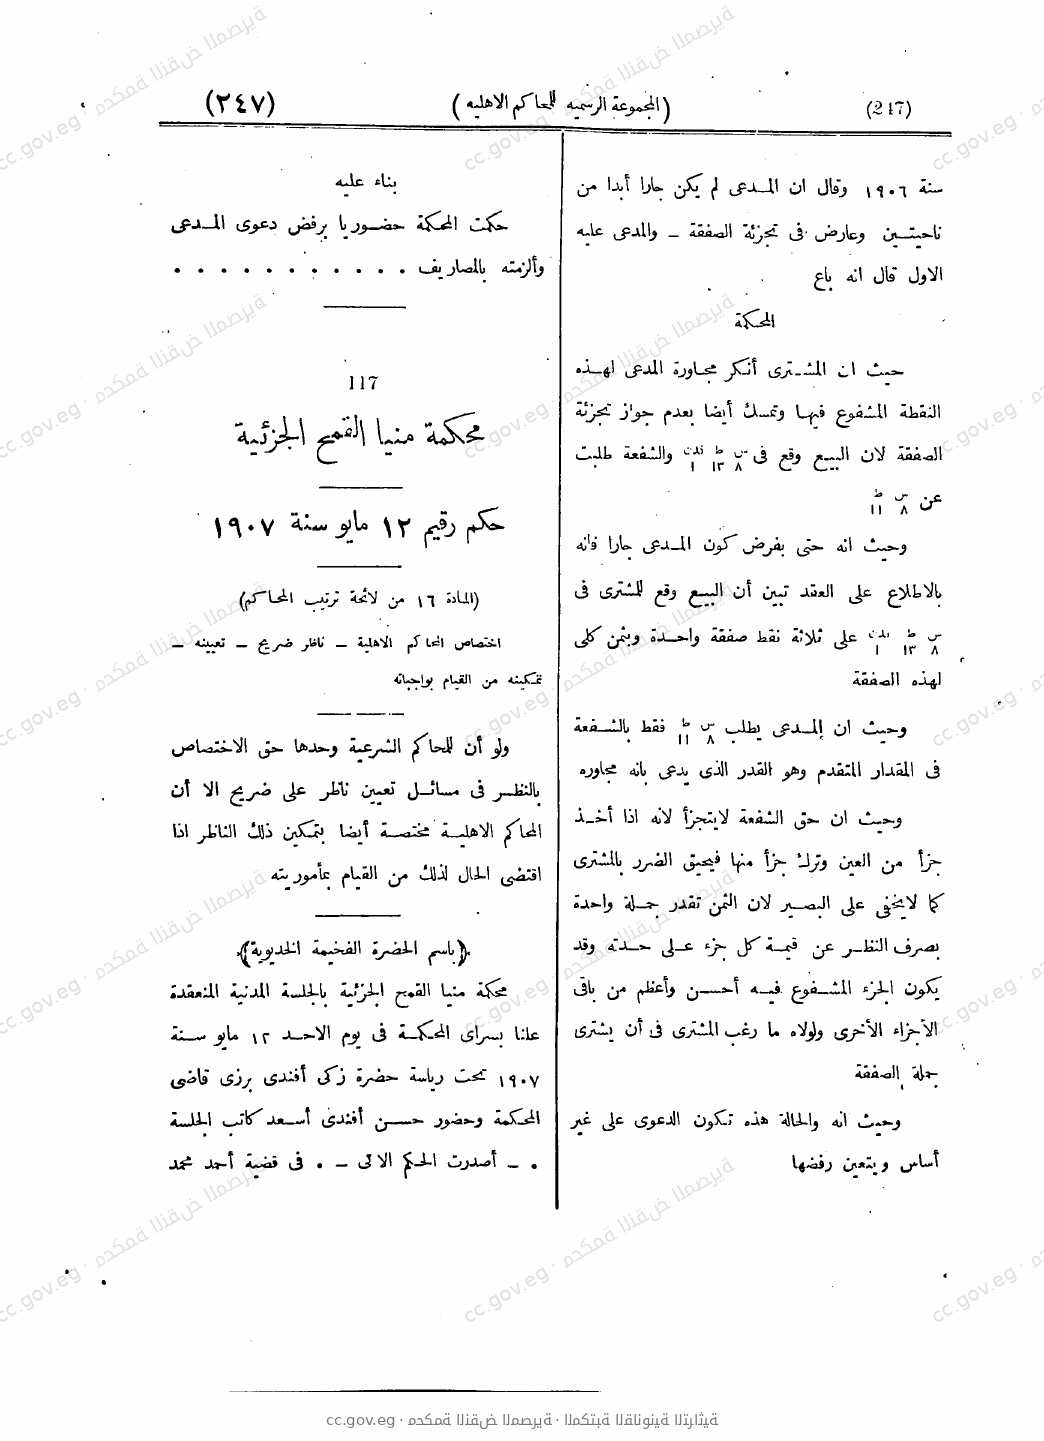 (247) (المجموعة الرسميه للمحاكم الاهليه) (٢٤٧)
سنة ١٩٠٦ وقال ان المدعى لم يكن جارا أبدا من
ناحيتين وعارض فى تجزئة الصفقة – والمدعى عليه
الاول قال انه باع
المحكمة
حيث ان المشترى أنكر مجاورة المدعى لهذه
النقطة المشفوع فيها وتمسك أيضا بعدم جواز تجزئة
الصفقة لان البيع وقع فى س ٨ ط ١٣ فدن ١ والشفعة طلبت
عن س ٨ ط ١١
وحيث انه حتى بفرض كون المدعى جارا فانه
بالاطلاع على العقد تبين أن البيع وقع للمشترى فى
س ٨ ط ١٣ فدن ١ على ثلاثة نقط صفقة واحدة وبثمن كلى
لهذه الصفقة
وحيث ان المدعى يطلب س ٨ ط ١١ فقط بالشفعة
فى المقدار المتقدم وهو القدر الذى يدعى بانه مجاوره
وحيث ان حق الشفعة لايتجزأ لانه اذا أخذ
جزأ من العين وترك جزأ منها فيحيق الضرر بالمشترى
كما لايخفى على البصير لان الثمن تقدر جملة واحدة
بصرف النظر عن قيمة كل جزء على حدته وقد
يكون الجزء المشفوع فيه أحسن وأعظم من باقى
الأجزاء الأخرى ولولاه ما رغب المشترى فى أن يشترى
جملة الصفقة
وحيث انه والحالة هذه تكون الدعوى على غير
أساس ويتعين رفضها
بناء عليه
حكمت المحكمة حضوريا برفض دعوى المدعى
وألزمته بالمصاريف . . . . . . . . . . .
117
محكمة منيا القمح الجزئية
حكم رقيم ١٢ مايو سنة ١٩٠٧
(المادة ١٦ من لائحة ترتيب المحاكم)
اختصاص المحاكم الاهلية – ناظر ضريح – تعيينه –
تمكينه من القيام بواجباته
ولو أن للمحاكم الشرعية وحدها حق الاختصاص
بالنظر فى مسائل تعيين ناظر على ضريح الا أن
المحاكم الاهلية مختصة أيضا بتمكين ذلك الناظر اذا
اقتضى الحال لذلك من القيام بمأموريته
(باسم الحضرة الفخيمة الخديوية)
محكمة منيا القمح الجزئية بالجلسة المدنية المنعقدة
علنا بسراى المحكمة فى يوم الاحد ١٢ مايو سنة
١٩٠٧ تحت رياسة حضرة زكى أفندى برزى قاضى
المحكمة وحضور حسن أفندى أسعد كاتب الجلسة
. – أصدرت الحكم الاتى – . فى قضية أحمد محمد
cc.gov.eg · محكمة النقض المصرية · المكتبة القانونية التراثية